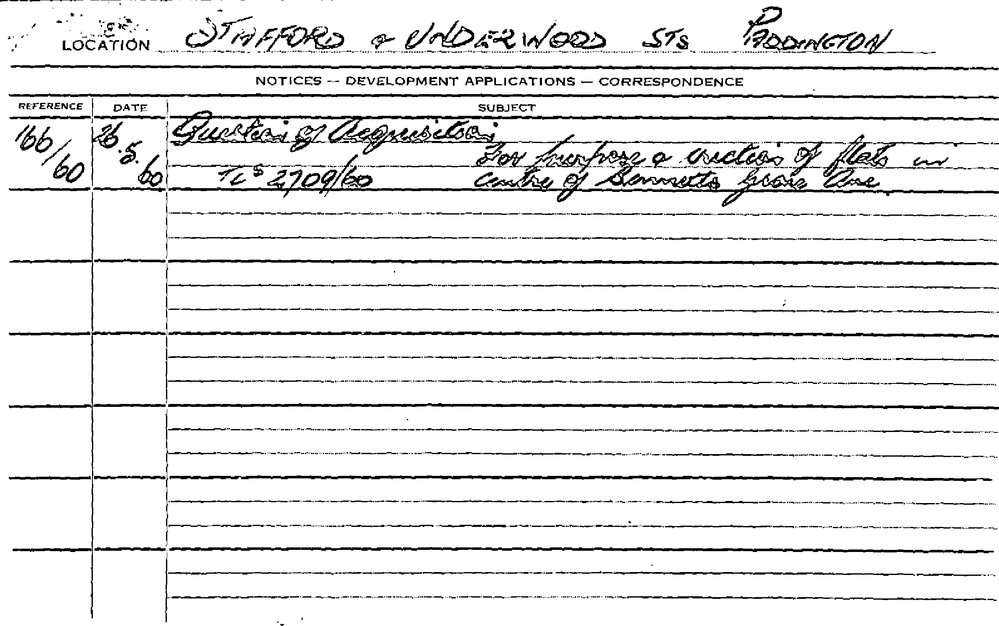 LOCATION STAFFORD & UNDERWOOD STS PADDINGTON
NOTICES — DEVELOPMENT APPLICATIONS — CORRESPONDENCE
REFERENCE DATE SUBJECT
166/60 26.5.60 Question of Acquisition
For purpose o erection of flats in
TCs 2709/60 centre of Bennetts Grove Ave.